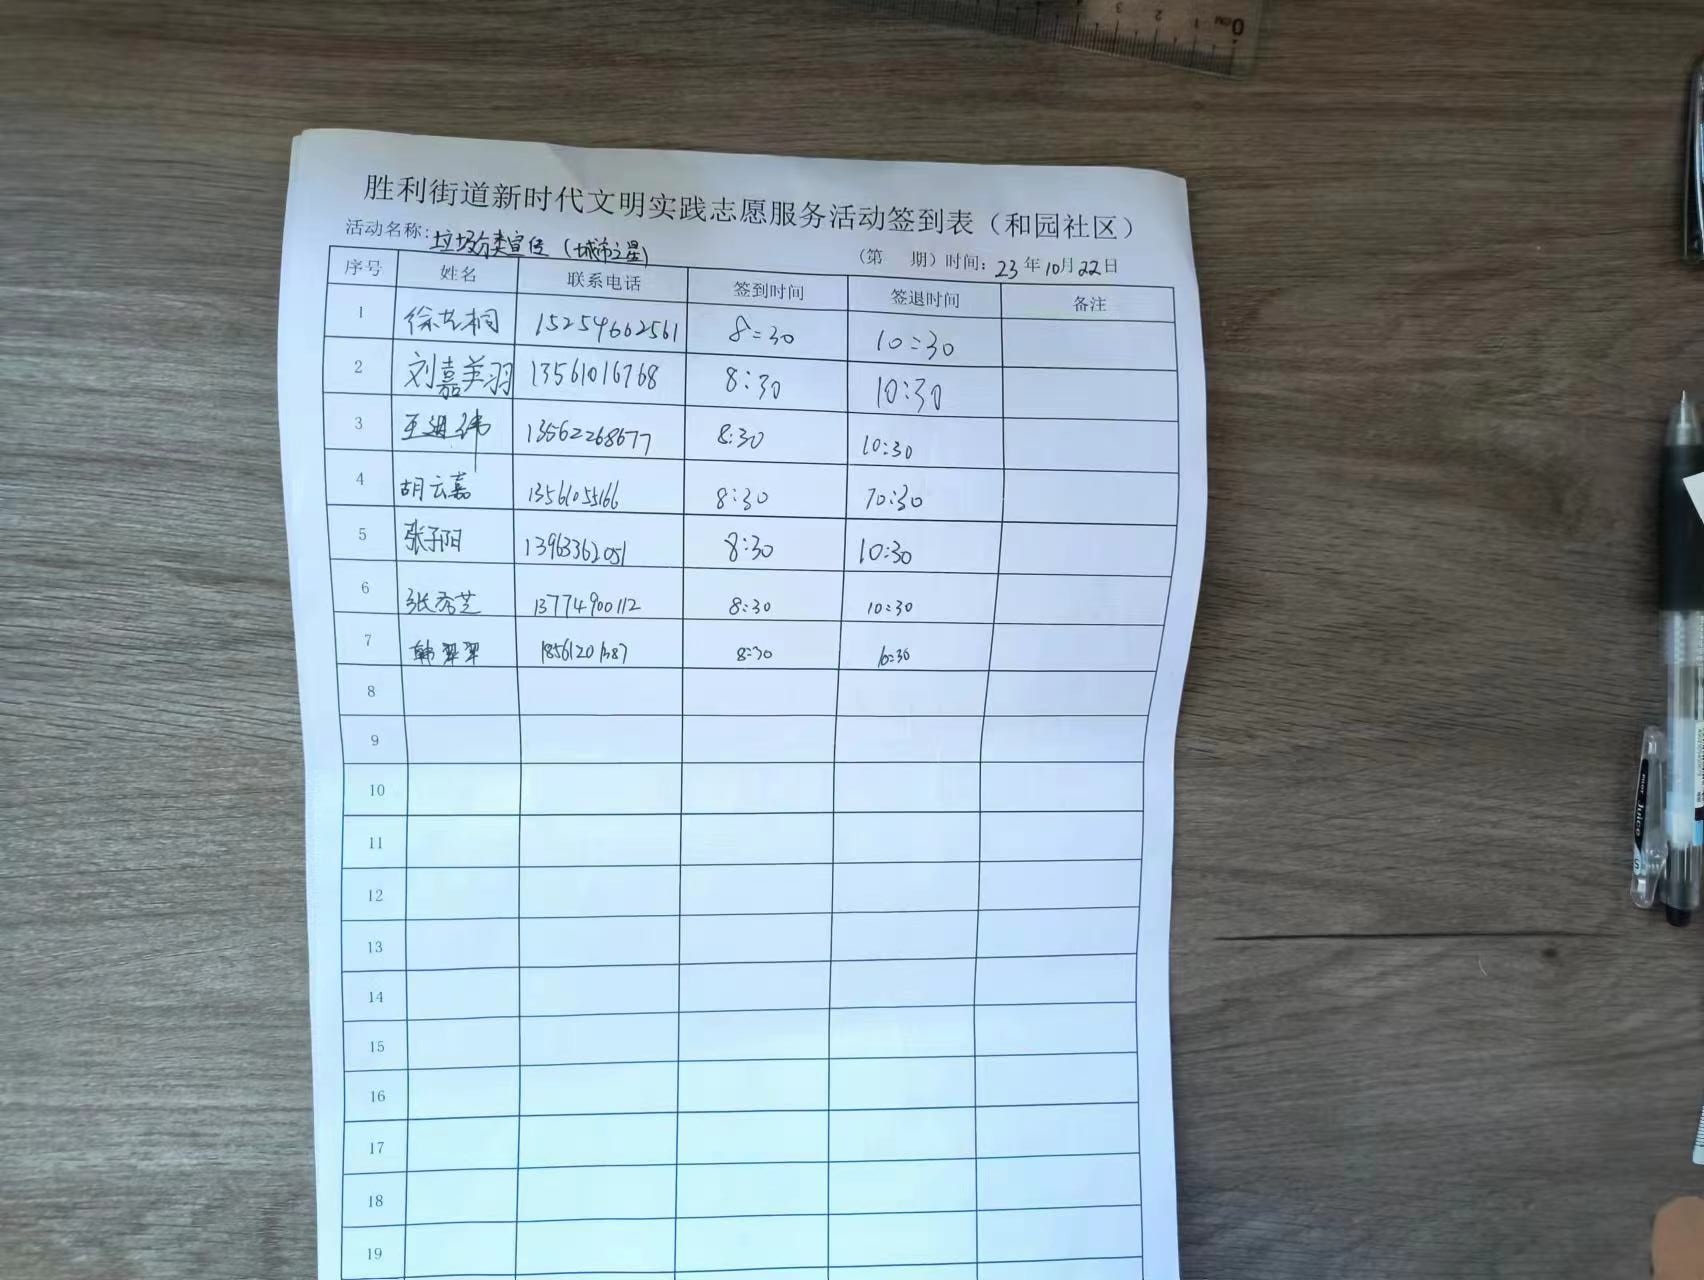 胜利街道新时代文明实践志愿服务活动签到表（和园社区）
活动名称：垃圾分类宣传（城市之星） （第 期）时间：23年10月22日
序号 姓名 联系电话 签到时间 签退时间 备注
1 徐艺桐 15254662561 8:30 10:30
2 刘嘉美羽 13561016768 8:30 10:30
3 13562268677 8:30 10:30
4 胡云嘉 13561055166 8:30 10:30
5 张子阳 13963362051 8:30 10:30
6 张秀芝 13774900112 8:30 10:30
7 韩翠翠 18561201387 8:30 10:30
8
9
10
11
12
13
14
15
16
17
18
19
0cm 1 2 3
Juice